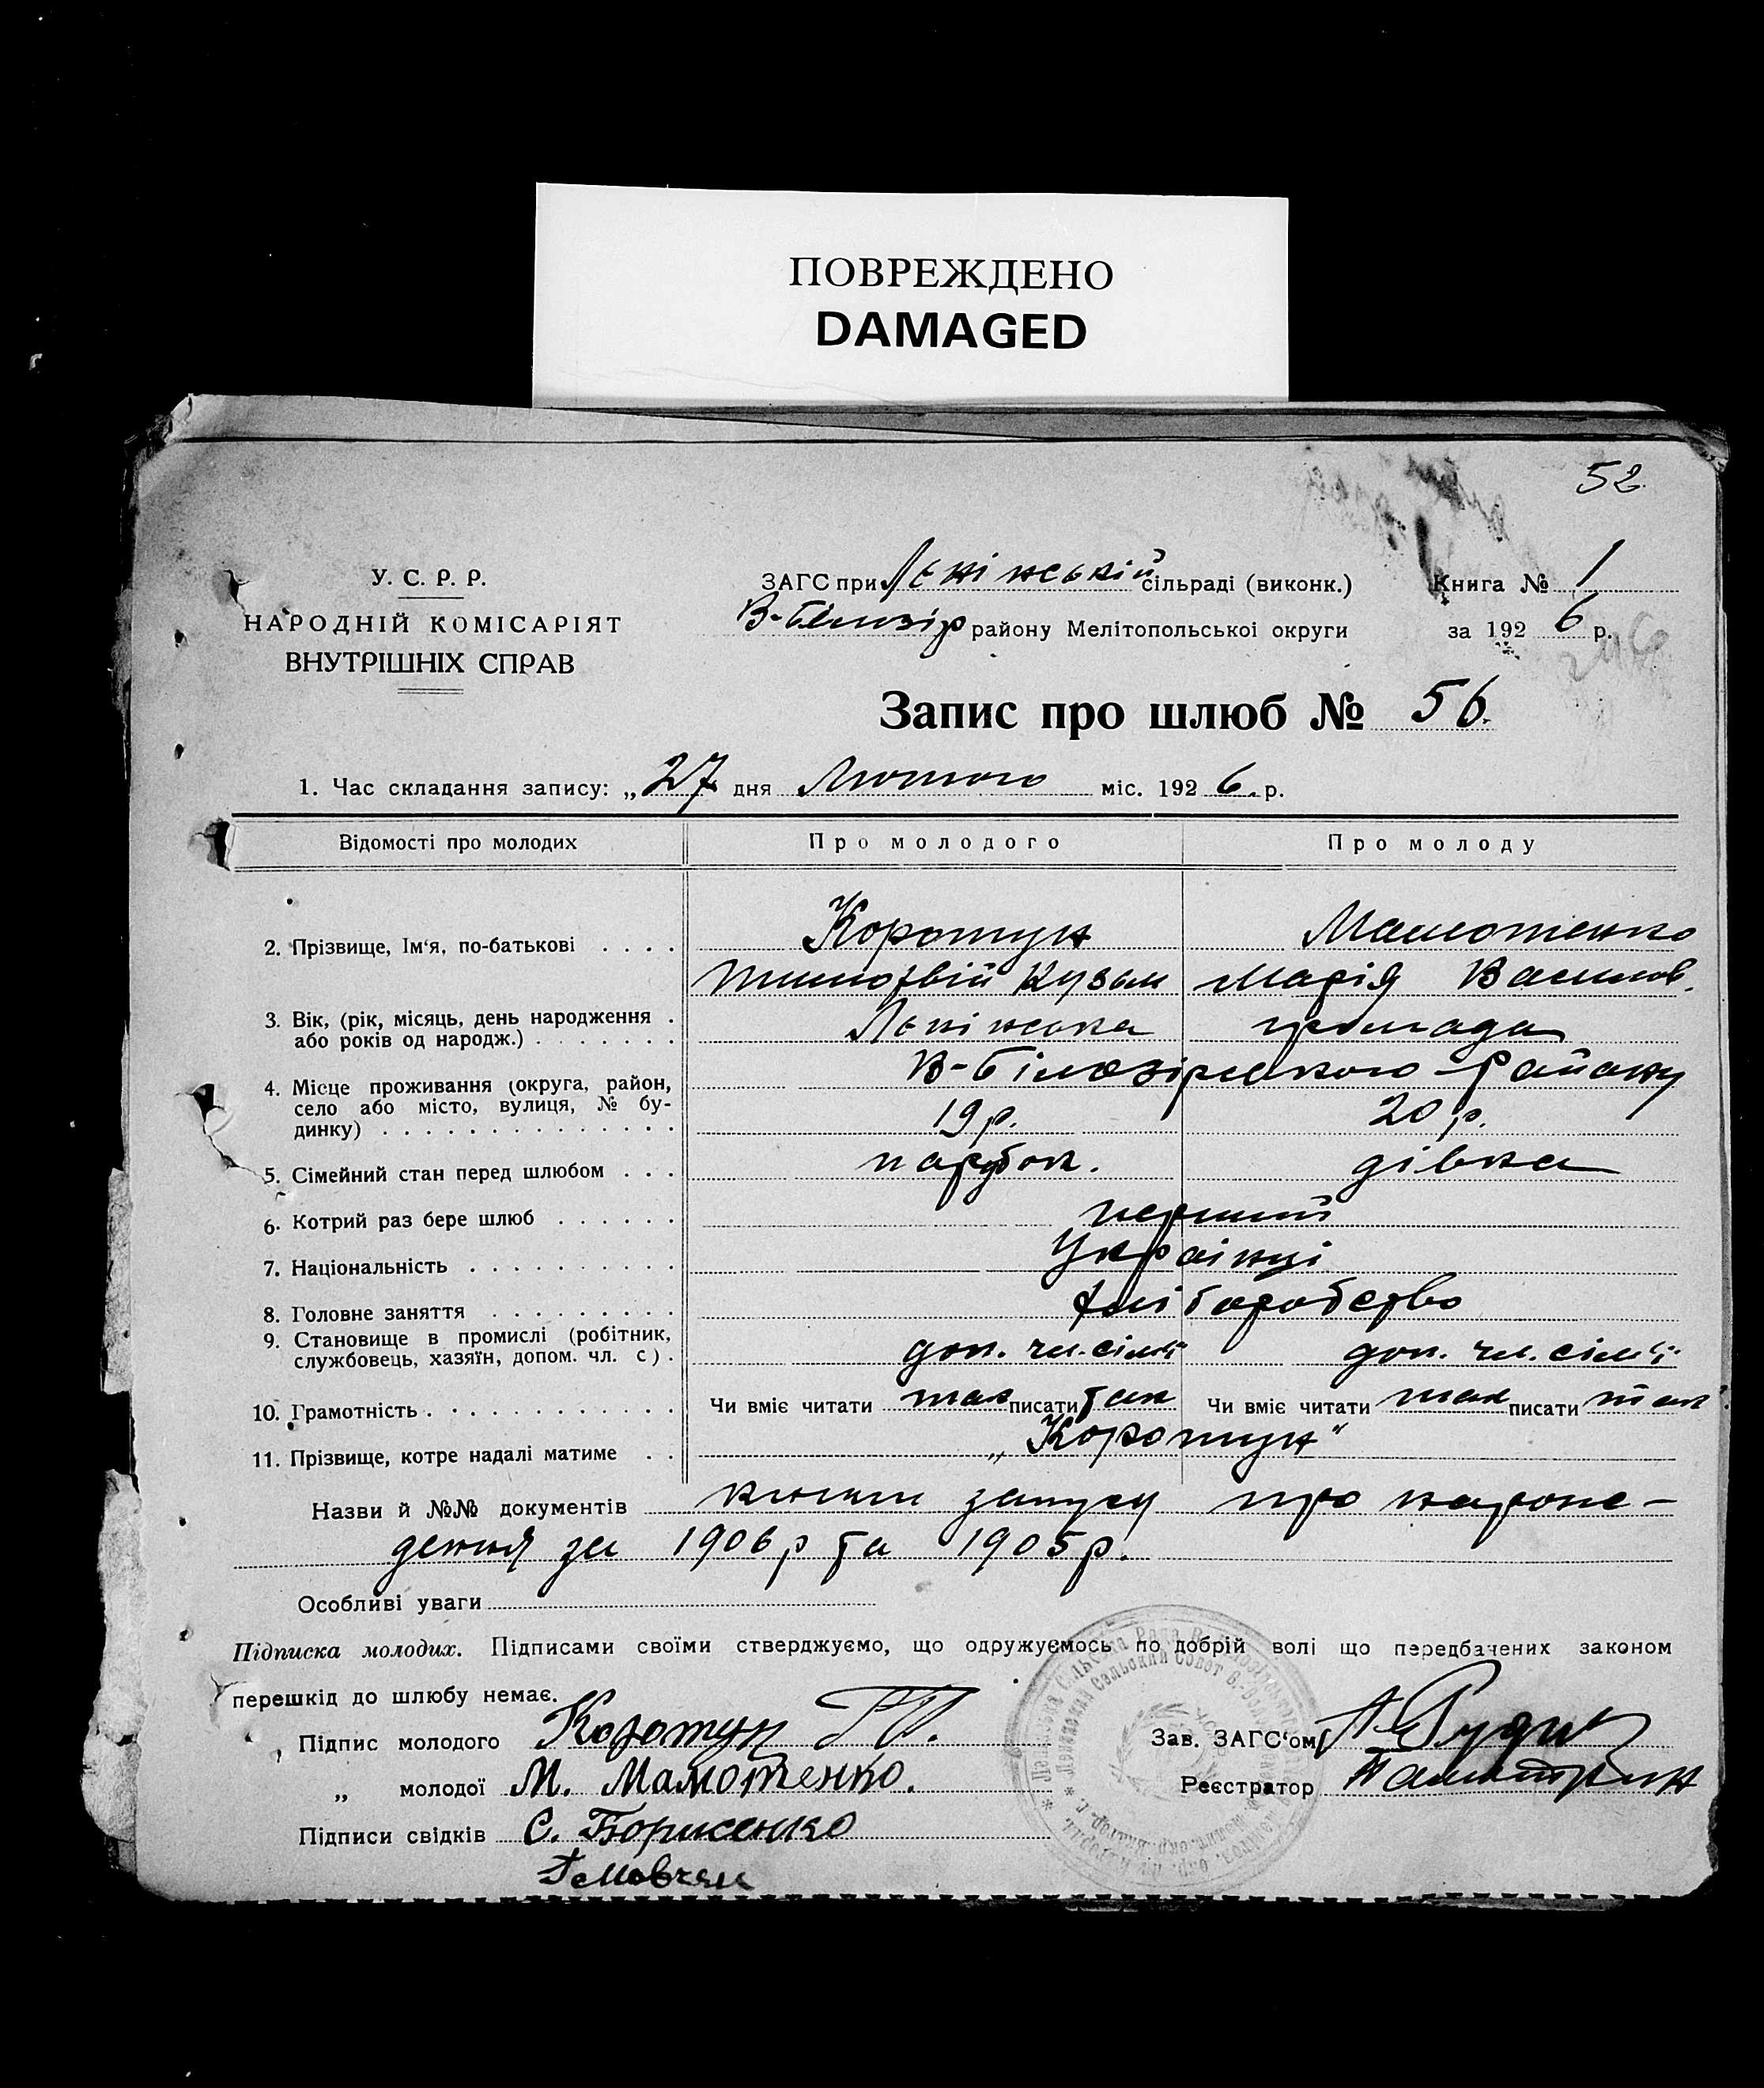 ПОВРЕЖДЕНО
DAMAGED
52
У. С. Р. Р.
НАРОДНІЙ КОМІСАРІЯТ
ВНУТРІШНІХ СПРАВ
ЗАГС при Ленінській сільраді (виконк.)
В-Білозір району Мелітопольської округи
Книга № 1
за 1926 р.
Запис про шлюб № 56.
1. Час складання запису: „27 дня Лютого міс. 1926. р.
Відомості про молодих Про молодого Про молоду
2. Прізвище, Ім'я, по-батькові . . . . Коротун Мамотенко
Тимофвій Кузьм Марія Васильов.
3. Вік, (рік, місяць, день народження . Ленінська громада
або років од народж.) . . . . . . .
В-Білозірського Району
4. Місце проживання (округа, район,
село або місто, вулиця, № бу-
динку) . . . . . . . . . . . . . . 19 р. 20 р.
5. Сімейний стан перед шлюбом . . . парубок. дівка
6. Котрий раз бере шлюб . . . . . . перший
7. Національність . . . . . . . . . . Українці
8. Головне заняття . . . . . . . . . хліборобство
9. Становище в промислі (робітник,
службовець, хазяїн, допом. чл. с) . доп. чл. сім'ї доп. чл. сім'ї
10. Грамотність . . . . . . . . . . . . Чи вміє читати так писати так Чи вміє читати так писати так
11. Прізвище, котре надалі матиме . . „Коротун"
Назви й №№ документів книги запису про народже-
дення за 1906 р та 1905 р.
Особливі уваги
Підписка молодих. Підписами своїми стверджуємо, що одружуємось по добрій волі що передбачених законом
перешкід до шлюбу немає.
Підпис молодого Коротун Т. Зав. ЗАГС'ом
„ молодої М. Мамотенко. Реєстратор
Підписи свідків С. Борисенко
Мовчан